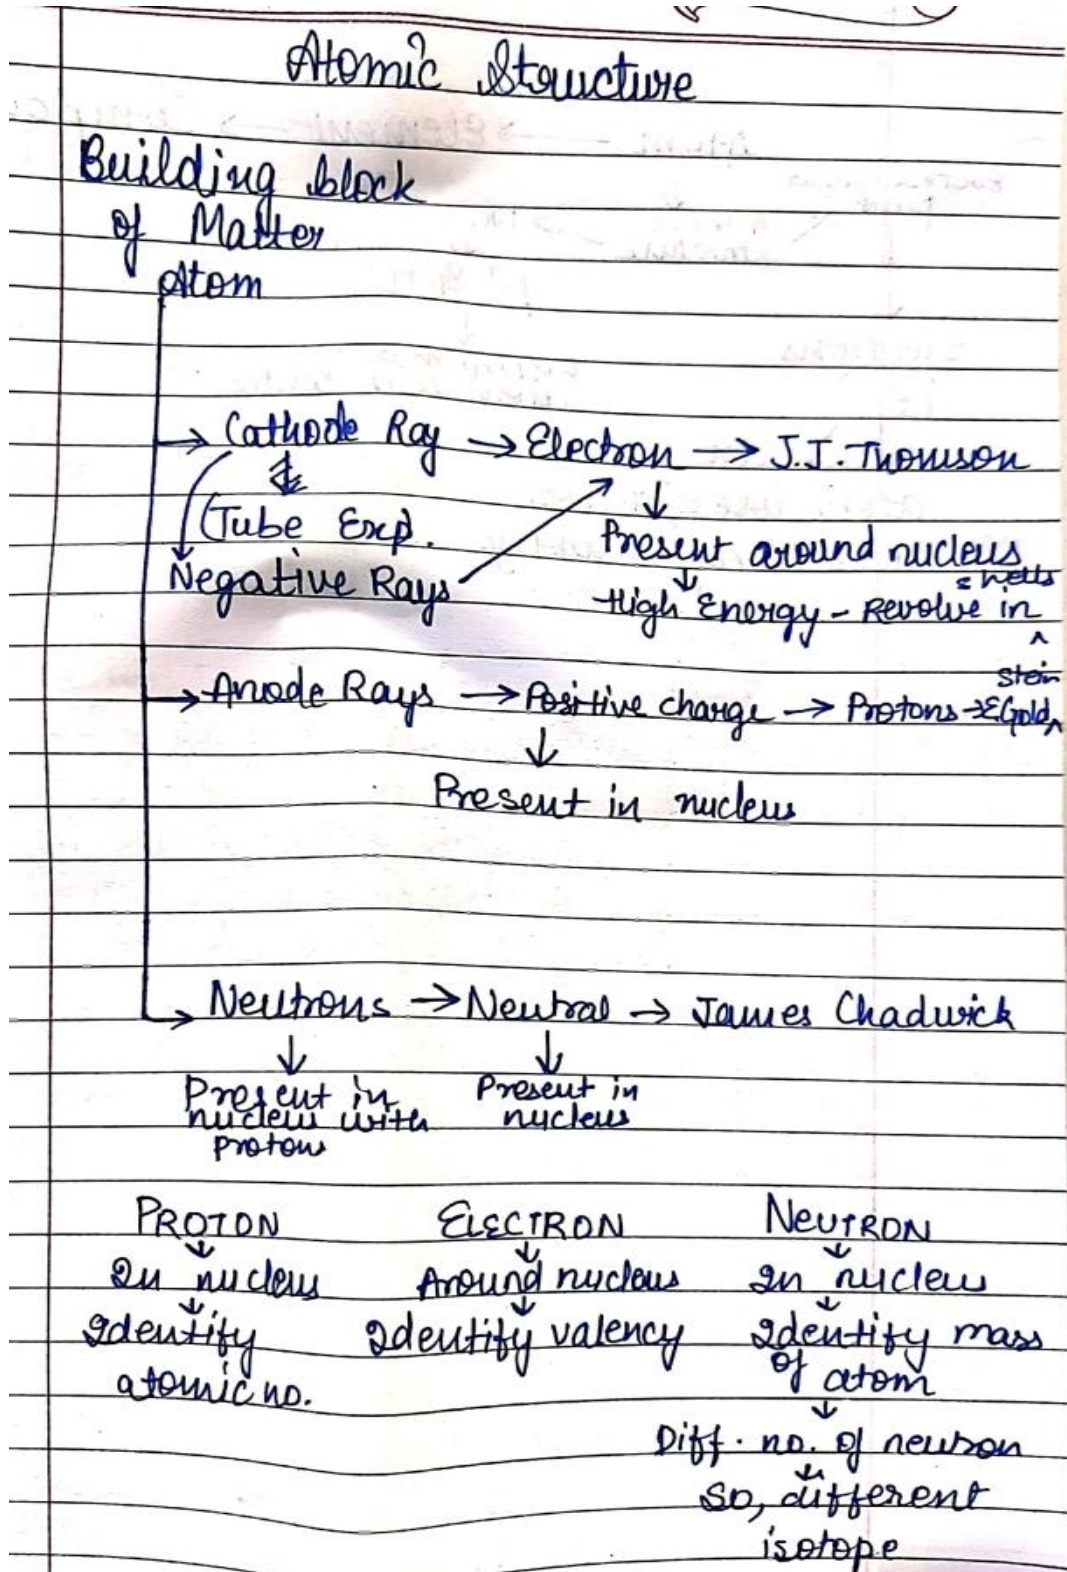 Atomic Structure
Building block
of Matter
Atom
→ Cathode Ray → Electron → J.J. Thomson
(Tube Exp.
Negative Rays
↓
Present around nucleus
↓
High Energy - Revolve in shells
→ Anode Rays → Positive charge → Protons → E Gold stein
↓
Present in nucleus
→ Neutrons → Neutral → James Chadwick
↓ ↓
Present in nucleus with protons
Present in nucleus
PROTON ELECTRON NEUTRON
↓ ↓ ↓
In nucleus Around nucleus In nucleus
↓ ↓ ↓
Identify Identify valency Identify mass
atomic no. of atom
↓
Diff. no. of neutron
↓
So, different
isotope